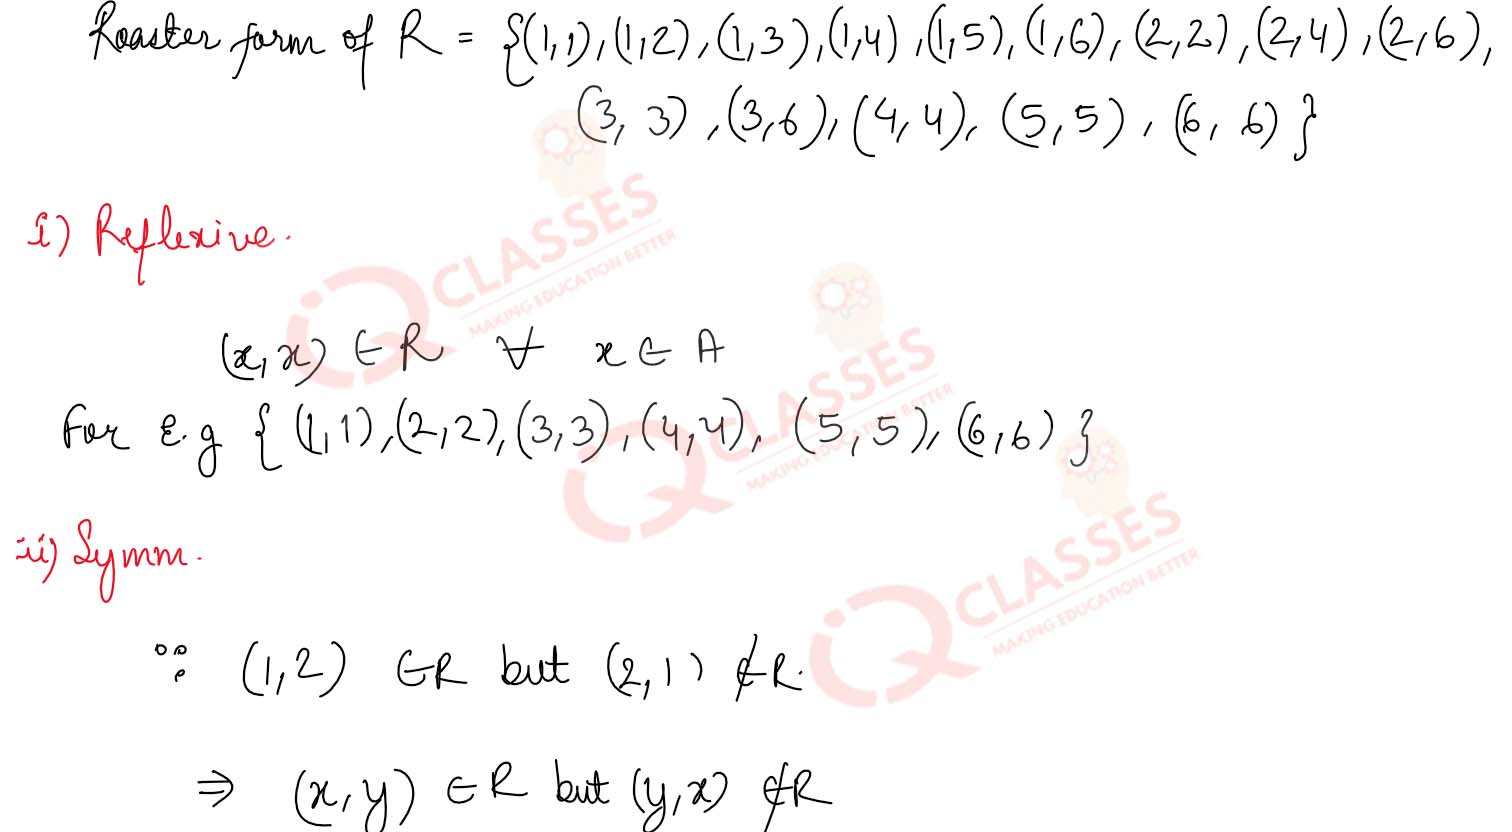 Roaster form of R = {(1,1),(1,2),(1,3),(1,4),(1,5),(1,6),(2,2),(2,4),(2,6),
(3,3),(3,6),(4,4),(5,5),(6,6)}
i) Reflexive.
(x,x) ∈ R ∀ x ∈ A
For E.g {(1,1),(2,2),(3,3),(4,4),(5,5),(6,6)}
ii) Symm.
∵ (1,2) ∈R but (2,1) ∉R.
⇒ (x,y) ∈R but (y,x) ∉R
iQ CLASSES
MAKING EDUCATION BETTER
iQ CLASSES
MAKING EDUCATION BETTER
iQ CLASSES
MAKING EDUCATION BETTER